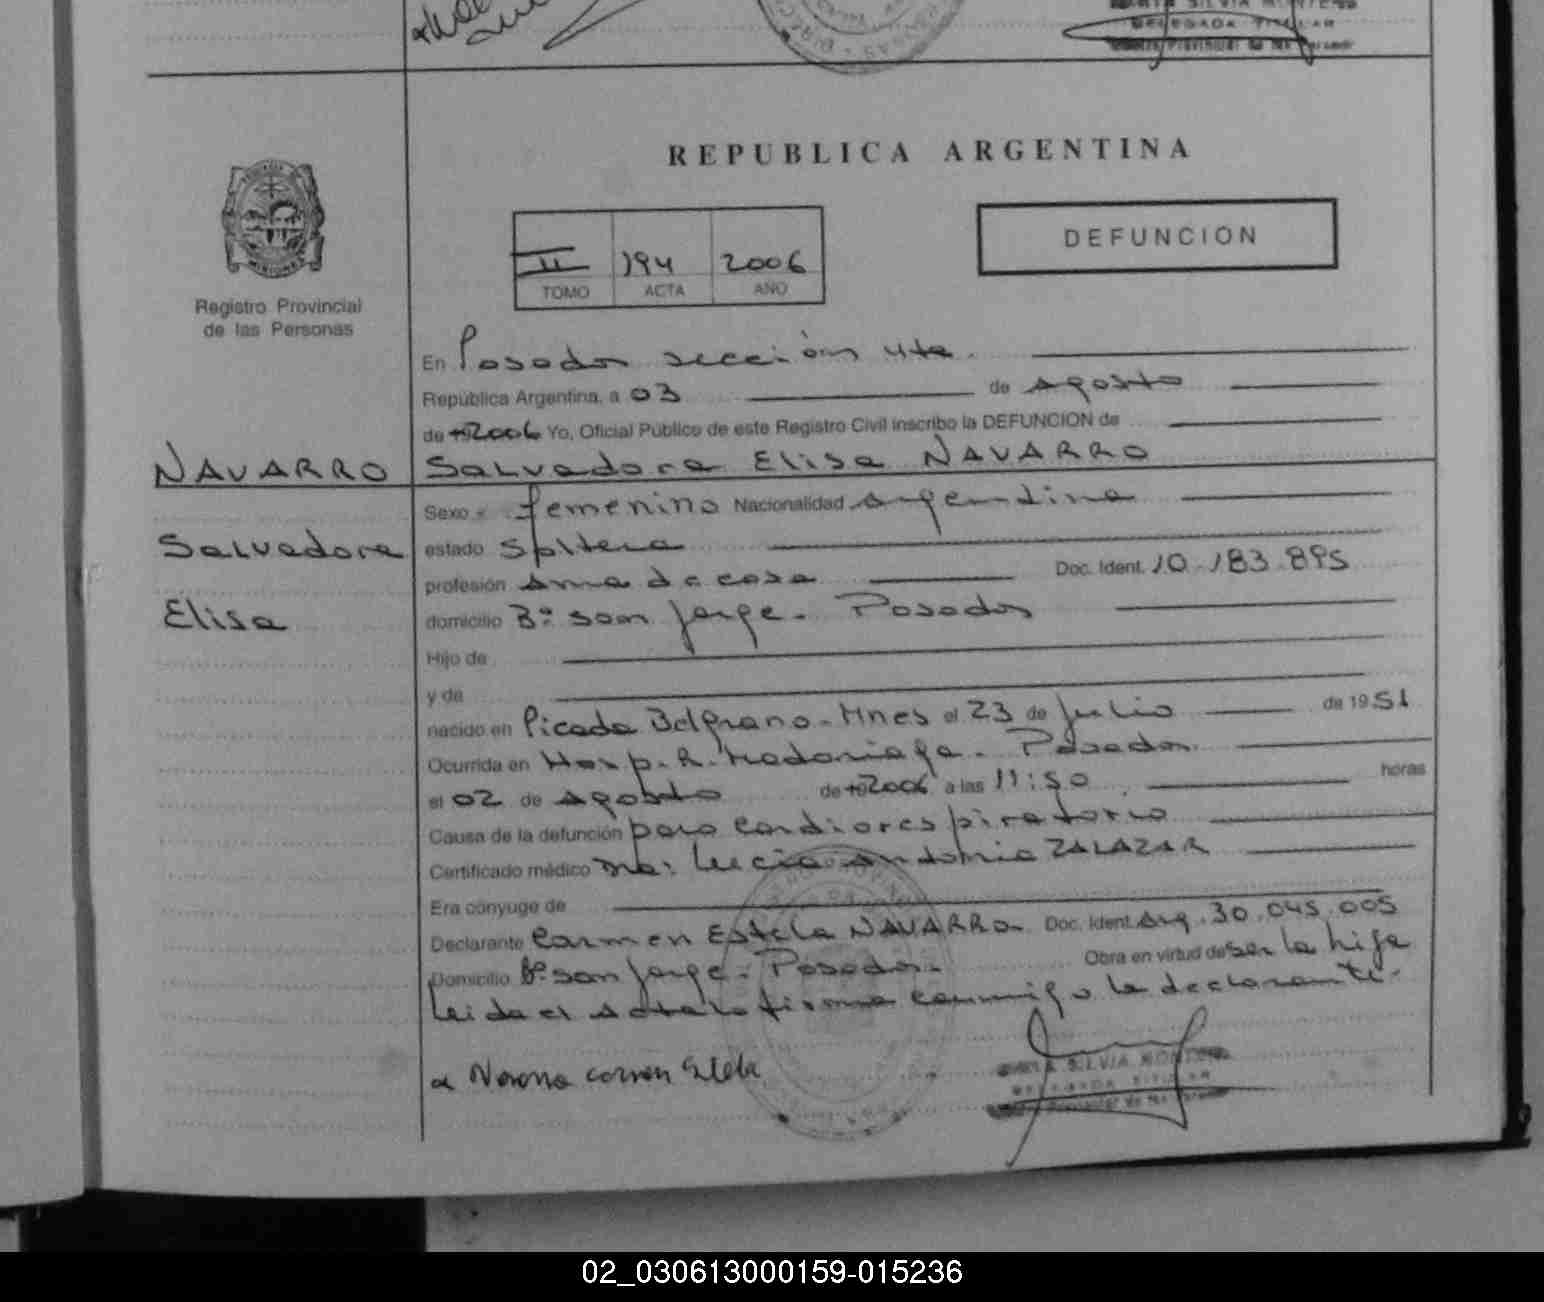 DELEGADA TITULAR
REPUBLICA ARGENTINA
DEFUNCION
II 194 2006
TOMO ACTA AÑO
Registro Provincial
de las Personas
En Posadas sección 4ta.
República Argentina, a 03 de Agosto
de 2006 Yo, Oficial Público de este Registro Civil inscribo la DEFUNCION de
NAVARRO Salvadora Elisa NAVARRO
Sexo femenino Nacionalidad Argentina
Salvadora estado Soltera
profesión Ama de casa Doc. Ident. 10.183.895
Elisa domicilio Bº San Jorge - Posadas
Hijo de
y de
nacido en Picada Belgrano - Mnes el 23 de Julio de 1951
Ocurrida en Hosp. R. Madariaga - Posadas
el 02 de Agosto de 2006 a las 11:50 horas
Causa de la defunción paro cardiorespiratorio
Certificado médico Dra: Lucia Antonia ZALAZAR
Era cónyuge de
Declarante Carmen Estela NAVARRO. Doc. Ident. Arg. 30.045.005
Domicilio Bº San Jorge - Posadas. Obra en virtud de ser la hija
Leida el Acta la firma conmigo la declarante.
SILVIA
02_030613000159-015236